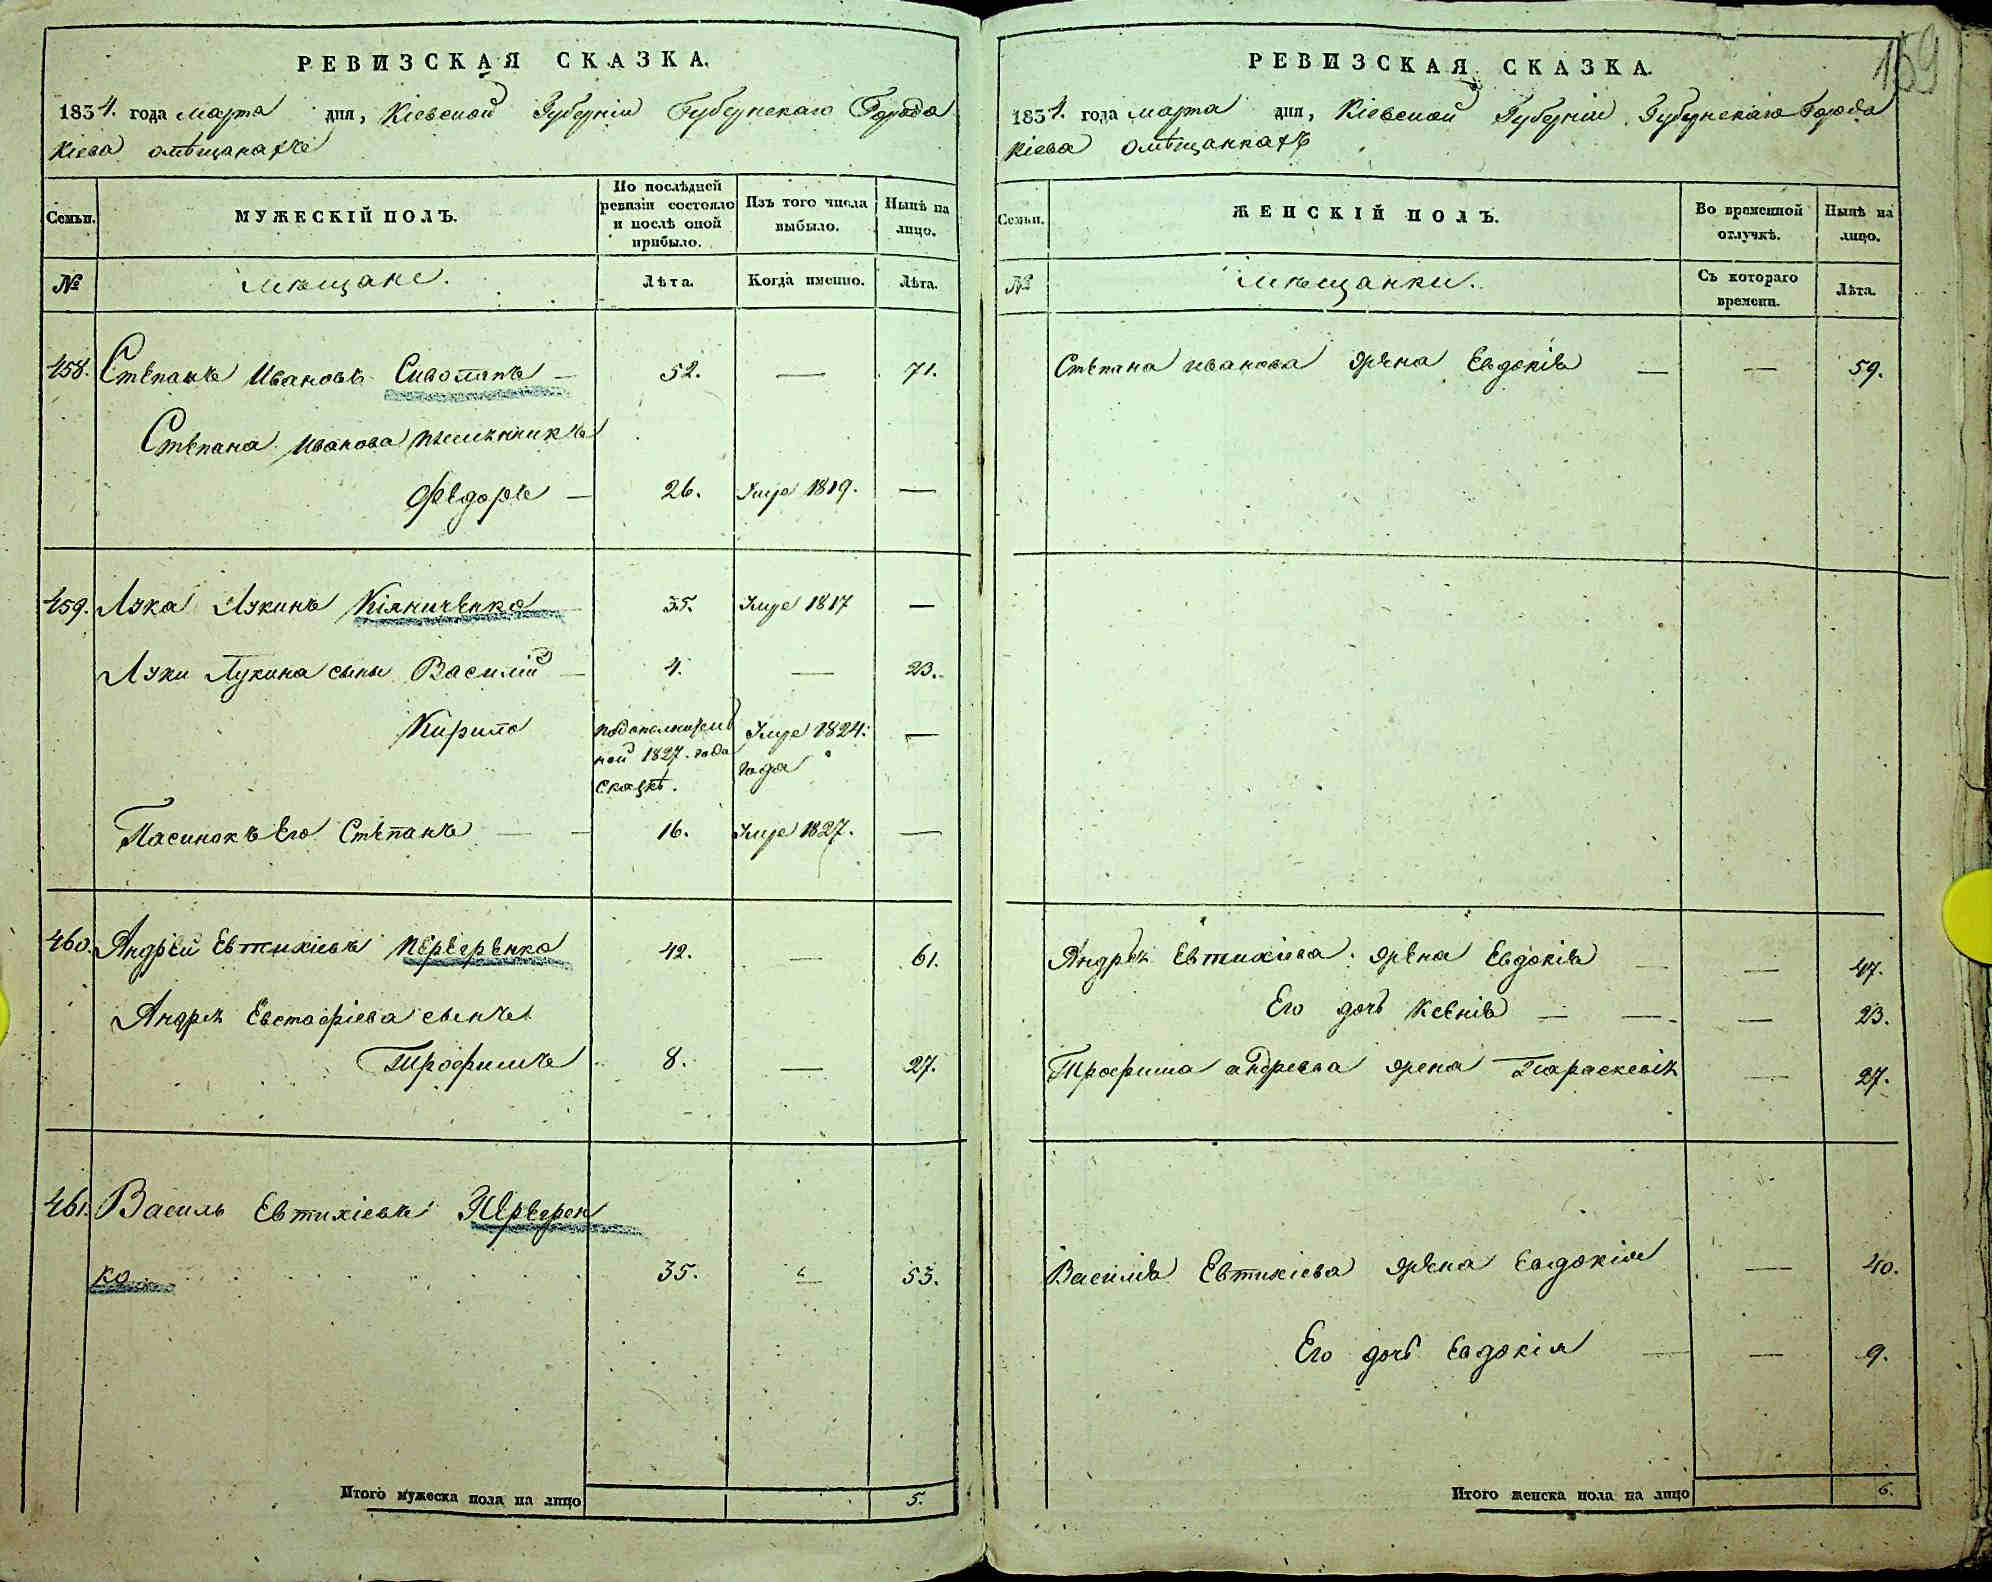 РЕВИЗСКАЯ СКАЗКА.
1834. года марта дня, Кіевской Губерніи Губернскаго Города
Кіева о мѣщанахъ
Семьи.
МУЖЕСКІЙ ПОЛЪ.
По послѣдней ревизіи состояло и послѣ оной прибыло.
Изъ того числа выбыло.
Нынѣ на лицо.
№
Мѣщане.
Лѣта.
Когда именно.
Лѣта.
458. Степанъ Ивановъ Сиволапъ — 52. — 71.
Степана Иванова племянникъ
Федоръ — 26. Умре 1819. —
459. Лука Лукинъ Кіяниченко 35. Умре 1817 —
Луки Лукина сыны Василій — 4. — 23.
Кирило
подополнитель
ной 1827. года
сказкѣ.
Умре 1824.
года
—
Пасинокъ Его Степанъ — — 16. Умре 1827. —
460. Андрей Евтихіевъ Переренко 42. — 61.
Андрея Евстафіева сынъ
Трофимъ 8. — 27.
461. Василь Евтихіевъ Перерен
ко 35. — 53.
Итого мужеска пола на лицо 5.
159
РЕВИЗСКАЯ СКАЗКА.
1834. года марта дня, Кіевской Губерніи Губернскаго Города
Кіева о мѣщанкахъ
Семьи.
ЖЕНСКІЙ ПОЛЪ.
Во временной отлучкѣ.
Нынѣ на лицо.
№
Мѣщанки.
Съ котораго времени.
Лѣта.
Степана Иванова жена Евдокія — — 59.
Андрея Евтихіева жена Евдокія — — 47.
Его дочь Ксенія — — — 23.
Трофима Андреева жена Параскевія — 27.
Василія Евтихіева жена Евдокія — 40.
Его дочь Евдокія — — 9.
Итого женска пола на лицо 6.